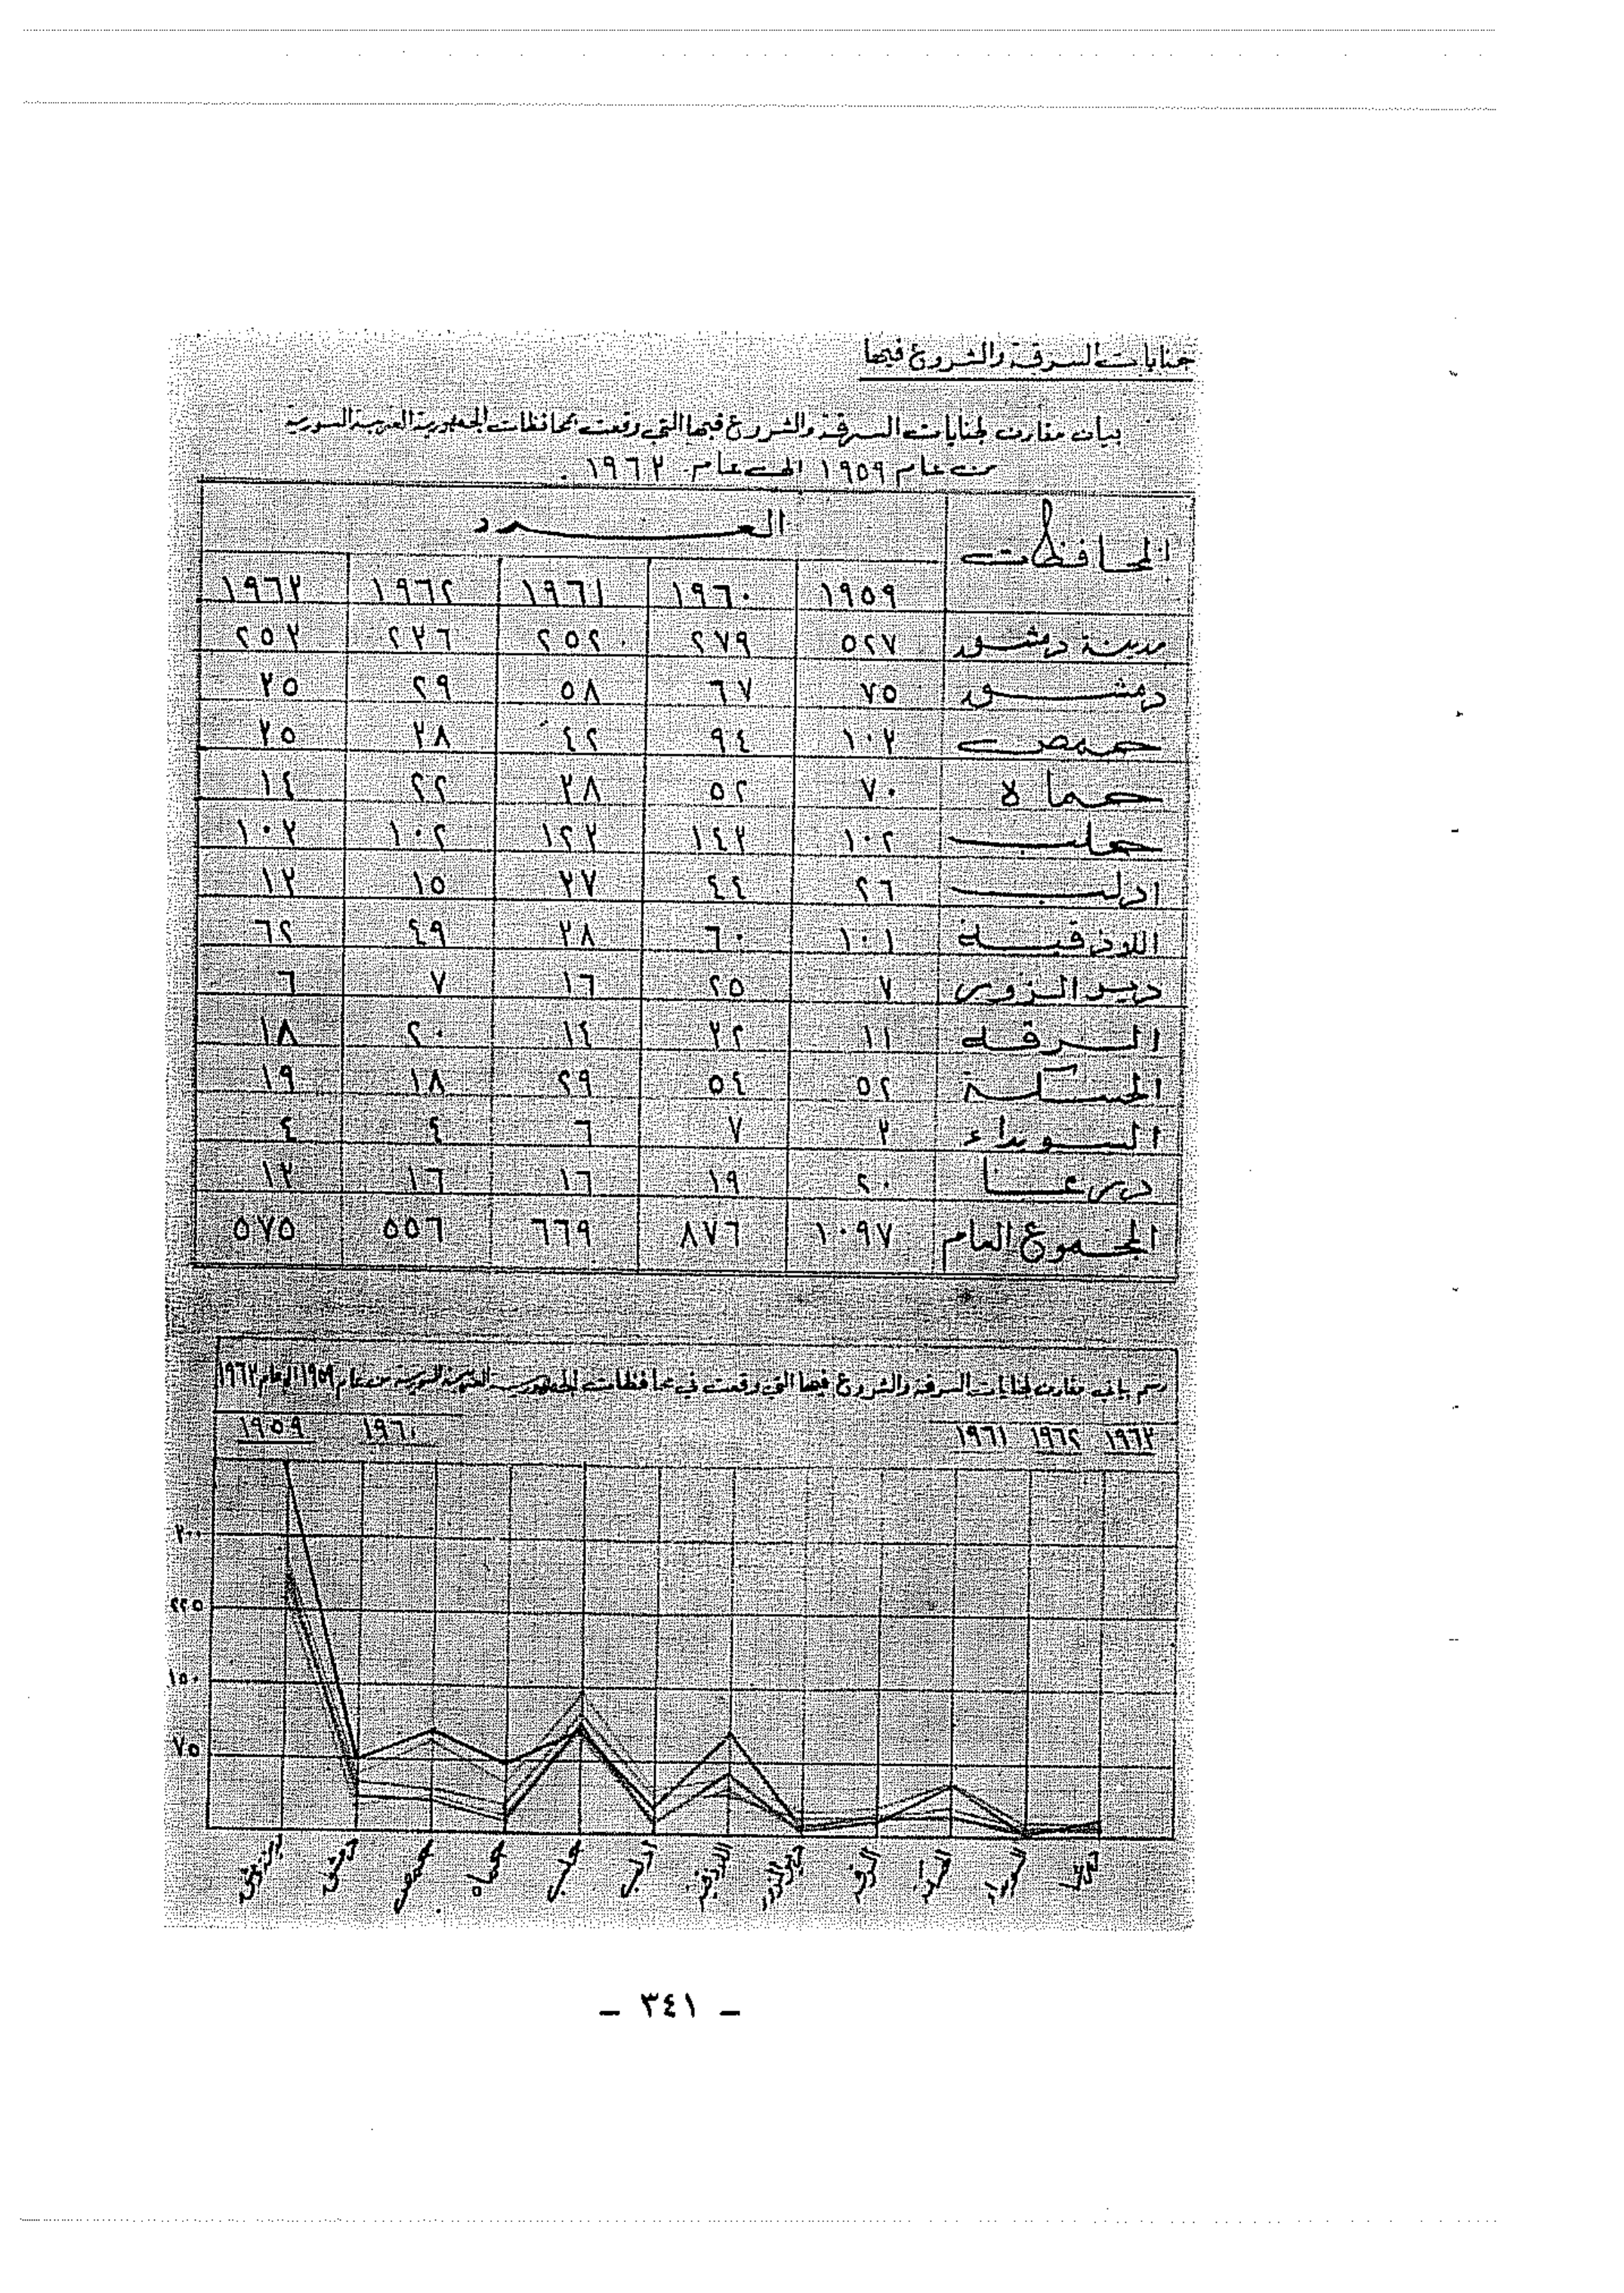 جنايات السرقة والشروع فيها
بيان مقارن لجنايات السرقة والشروع فيها التي وقعت بمحافظات الجمهورية العربية السورية
من عام ١٩٥٩ الى عام ١٩٦٣ .
المحافظات العدد
١٩٥٩ ١٩٦٠ ١٩٦١ ١٩٦٢ ١٩٦٣
مدينة دمشق ٥٢٧ ٢٧٩ ٢٥٢ ٢٣٦ ٢٥٣
دمشق ٧٥ ٦٧ ٥٨ ٢٩ ٣٥
حمص ١٠٣ ٩٤ ٤٢ ٣٨ ٣٥
حماه ٧٠ ٥٢ ٣٨ ٢٢ ١٤
حلب ١٠٢ ١٤٣ ١٢٣ ١٠٢ ١٠٣
ادلب ٢٦ ٤٤ ٣٧ ١٥ ١٣
اللاذقية ١٠١ ٦٠ ٣٨ ٤٩ ٦٢
دير الزور ٧ ٢٥ ١٦ ٧ ٦
الرقه ١١ ٣٢ ١٤ ٢٠ ١٨
الحسكة ٥٢ ٥٤ ٢٩ ١٨ ١٩
السويداء ٣ ٧ ٦ ٤ ٤
درعا ٢٠ ١٩ ١٦ ١٦ ١٣
المجموع العام ١٠٩٧ ٨٧٦ ٦٦٩ ٥٥٦ ٥٧٥
رسم بياني مقارن لجنايات السرقة والشروع فيها التي وقعت في محافظات الجمهورية العربية السورية من عام ١٩٥٩ الى عام ١٩٦٣
١٩٦٣ ١٩٦٢ ١٩٦١ ١٩٦٠ ١٩٥٩
٣٠٠
٢٢٥
١٥٠
٧٥
دمشق حمص حماه حلب ادلب اللاذقية دير الزور الرقه الحسكة السويداء درعا
- ٣٤١ -